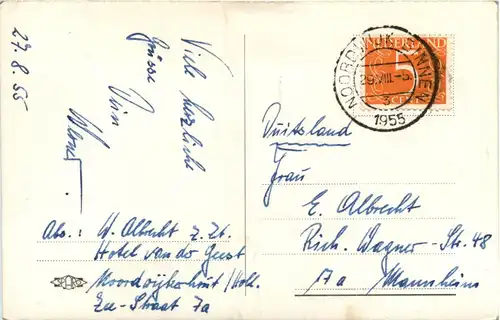 27.8.55
Viele herzliche
Grüsse
Dein
Abs.: W. Albrecht z. Zt.
Hotel van de Geest
Noordwijkerhout/Holl.
Zee-Straat 7a
NEDERLAND
5
CENT
NOORDWIJK-BINNEN
29.VIII.-5
3
1955
Duitsland
Frau
E. Albrecht
Rich. Wagner-Str. 48
17a Mannheim